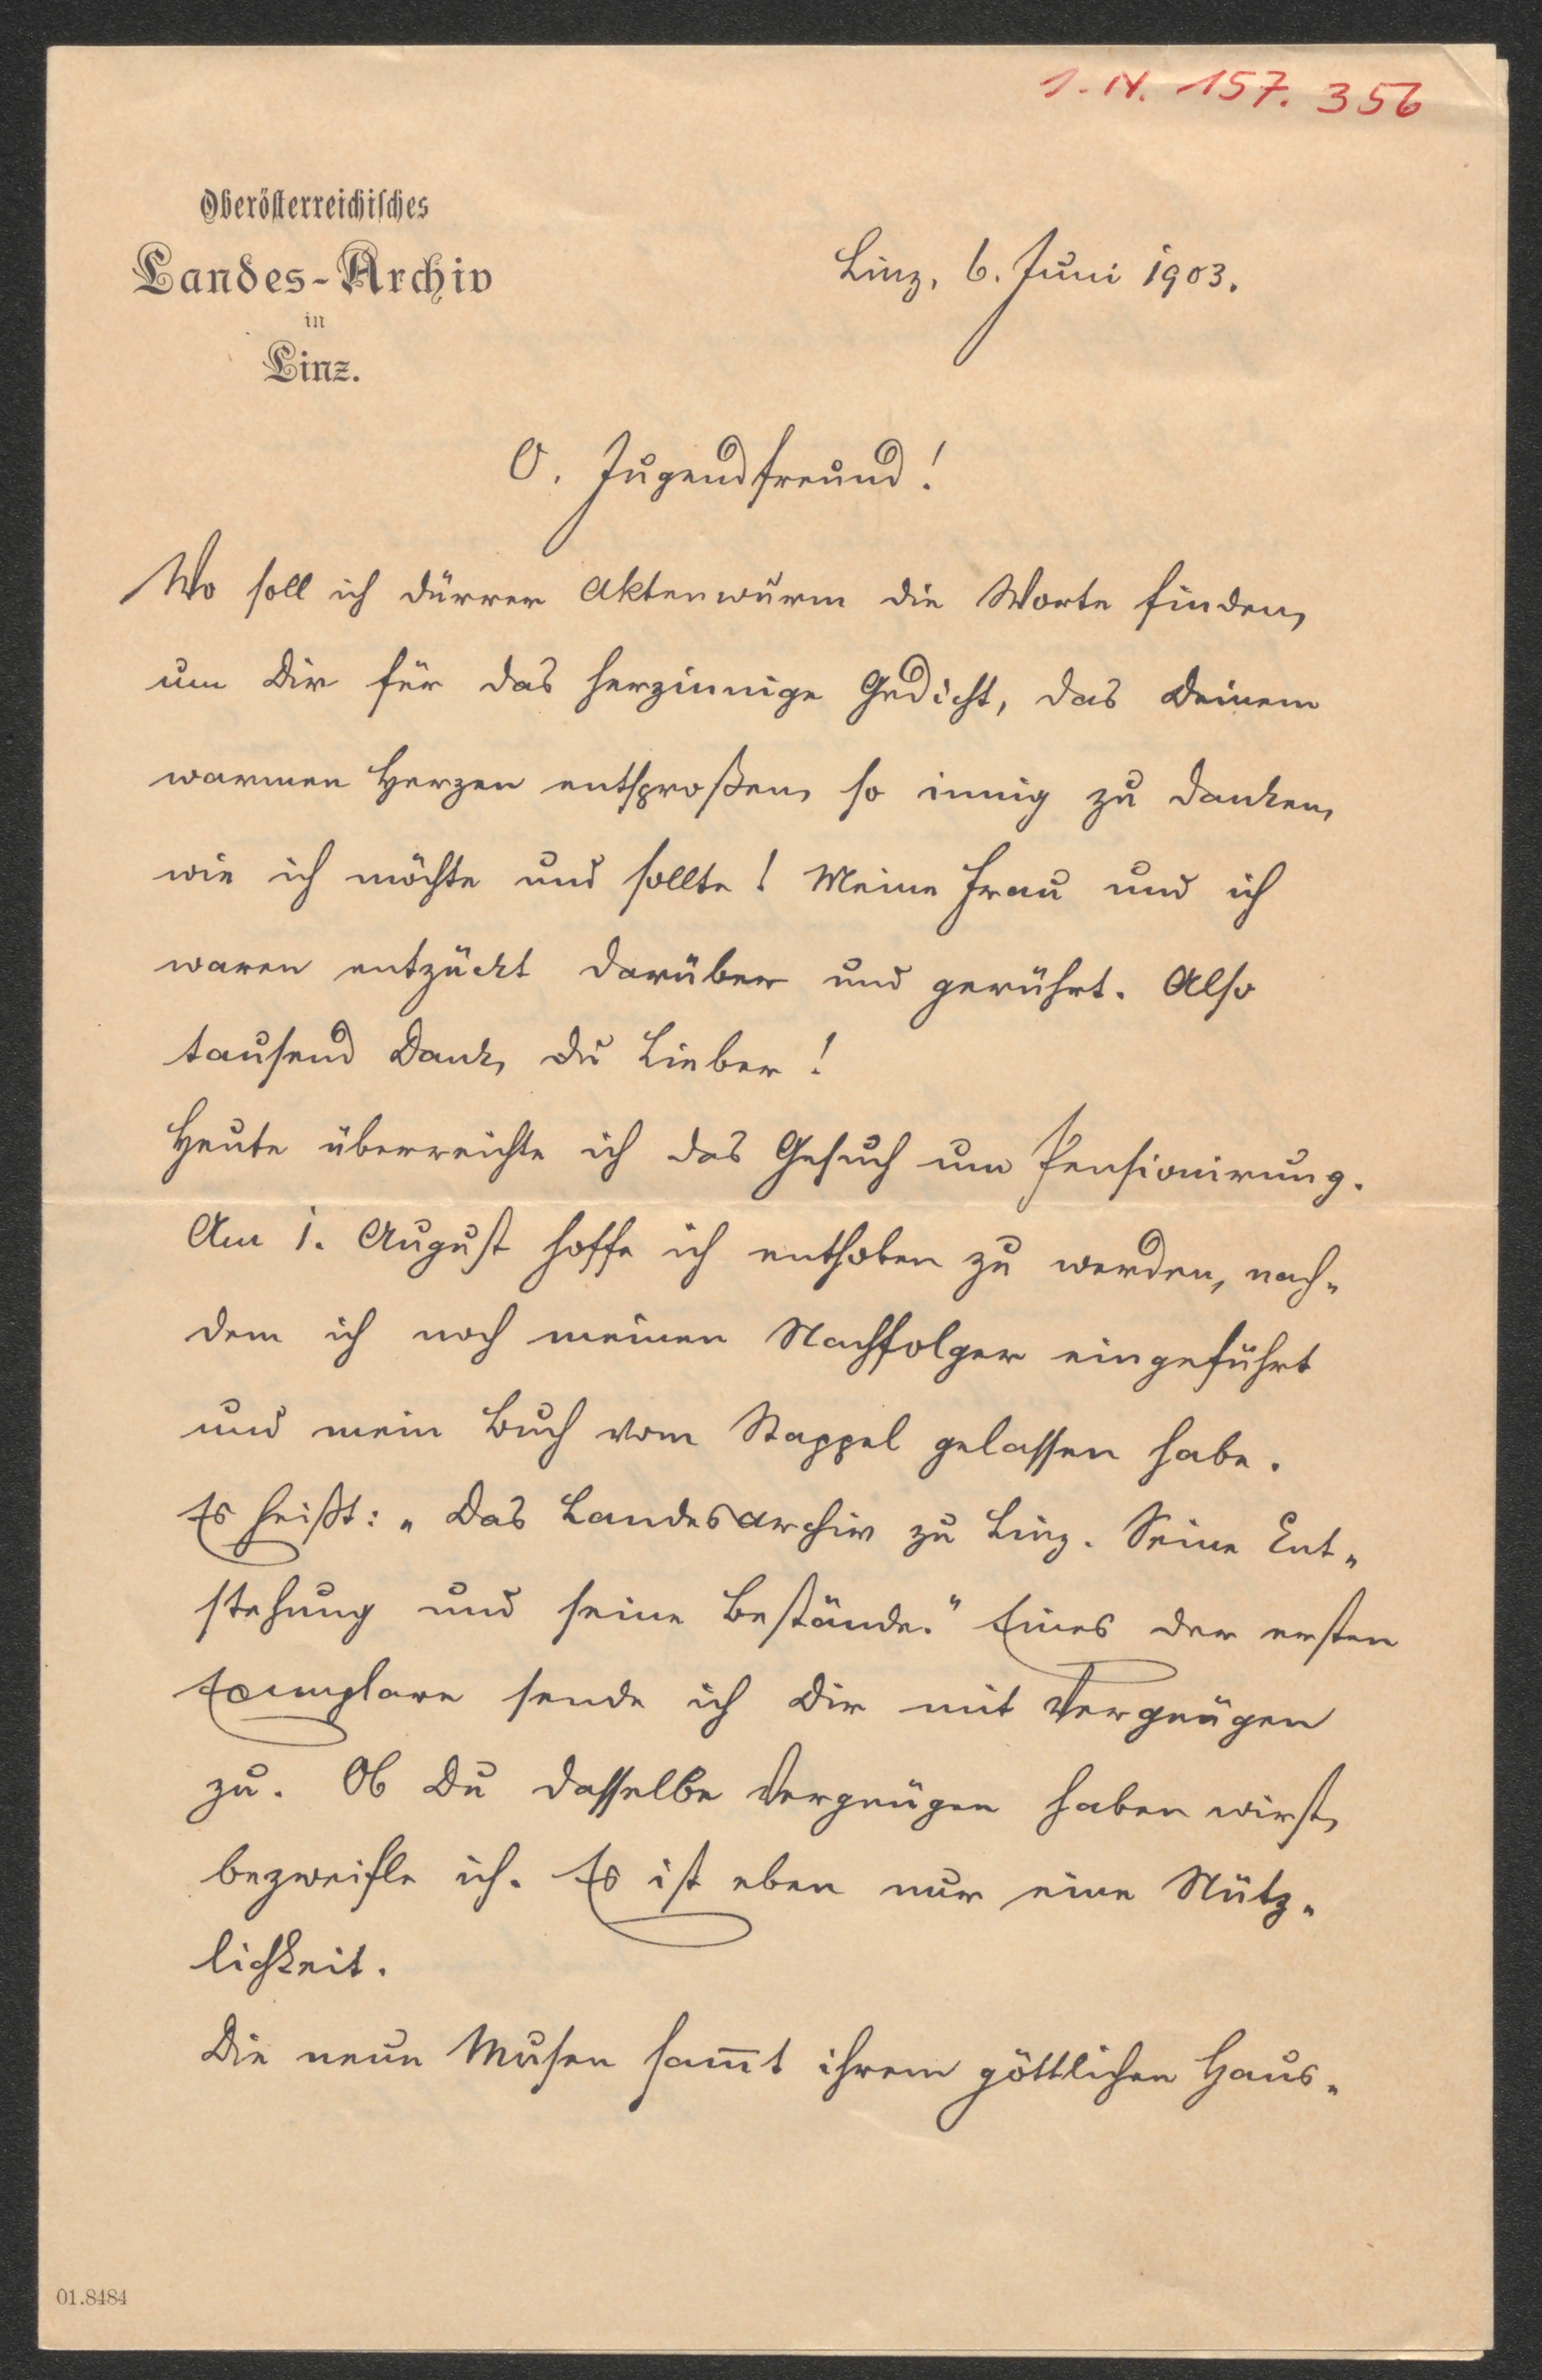 I. N. 157.356
Oberösterreichisches
Landes-Archiv
in
Linz.
Linz, 6. Juni 1903.
O. Jugendfreund!
Wo soll ich dürrer Aktenwurm die Worte finden,
um Dir für das herzinnige Gedicht, das Deinem
warmen Herzen entsproßen, so innig zu danken,
wie ich möchte und sollte! Meine Frau und ich
waren entzückt darüber und gerührt. Also
tausend Dank, Du Lieber!
Heute überreichte ich das Gesuch um Pensionirung.
Am 1. August hoffe ich enthoben zu werden, nach-
dem ich noch meinen Nachfolger eingeführt
und mein Buch vom Stappel gelassen habe.
Es heißt: „Das Landesarchiv zu Linz. Seine Ent-
stehung und seine Bestände." Eines der ersten
Exemplare sende ich Dir mit Vergnügen
zu. Ob Du dasselbe Vergnügen haben wirst,
bezweifle ich. Es ist eben nur eine Nütz-
lichkeit.
Die neun Musen sam̅t ihrem göttlichen Haus-
01.8484